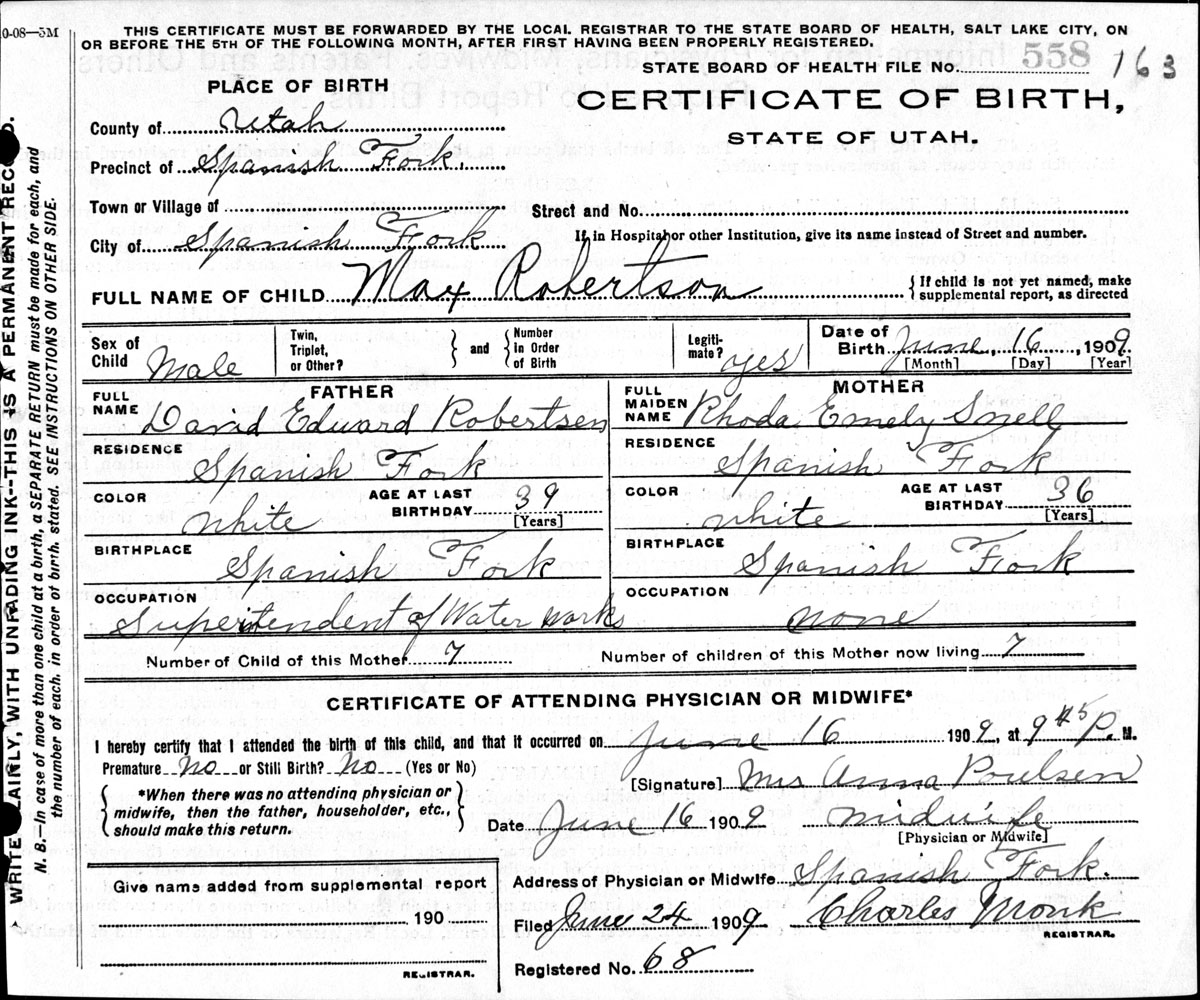 0-08—5M
THIS CERTIFICATE MUST BE FORWARDED BY THE LOCAL REGISTRAR TO THE STATE BOARD OF HEALTH, SALT LAKE CITY, ON
OR BEFORE THE 5TH OF THE FOLLOWING MONTH, AFTER FIRST HAVING BEEN PROPERLY REGISTERED.
STATE BOARD OF HEALTH FILE No. 558 163
PLACE OF BIRTH
CERTIFICATE OF BIRTH,
STATE OF UTAH.
County of Utah
Precinct of Spanish Fork.
Town or Village of
Street and No.
City of Spanish Fork
If in Hospital or other Institution, give its name instead of Street and number.
FULL NAME OF CHILD Max Robertson
{ If child is not yet named, make
supplemental report, as directed
Sex of Child Male
Twin, Triplet, or Other?
} and {
Number in Order of Birth
Legiti-mate? yes
Date of Birth June, 16, 1909.
[Month] [Day] [Year]
FATHER
FULL NAME David Edward Robertsen
RESIDENCE Spanish Fork
COLOR white
AGE AT LAST BIRTHDAY 39
[Years]
BIRTHPLACE Spanish Fork
OCCUPATION Superitendent of Water works
MOTHER
FULL MAIDEN NAME Rhoda Emely Snell
RESIDENCE Spanish Fork
COLOR white
AGE AT LAST BIRTHDAY 36
[Years]
BIRTHPLACE Spanish Fork
OCCUPATION none
Number of Child of this Mother 7
Number of children of this Mother now living 7
CERTIFICATE OF ATTENDING PHYSICIAN OR MIDWIFE*
I hereby certify that I attended the birth of this child, and that it occurred on June 16 1909, at 9 45 P. M.
Premature No or Still Birth? No (Yes or No)
[Signature] Mrs Anna Poulsen
{ *When there was no attending physician or
midwife, then the father, householder, etc.,
should make this return. }
Date June 16 1909
midwife
[Physician or Midwife]
Give name added from supplemental report
190
REGISTRAR.
Address of Physician or Midwife Spanish Fork.
Filed June 24 1909 Charles Monk
REGISTRAR.
Registered No. 68
WRITE PLAINLY, WITH UNFADING INK--THIS IS A PERMANENT RECORD.
N. B.—In case of more than one child at a birth, a SEPARATE RETURN must be made for each, and
the number of each, in order of birth, stated. SEE INSTRUCTIONS ON OTHER SIDE.